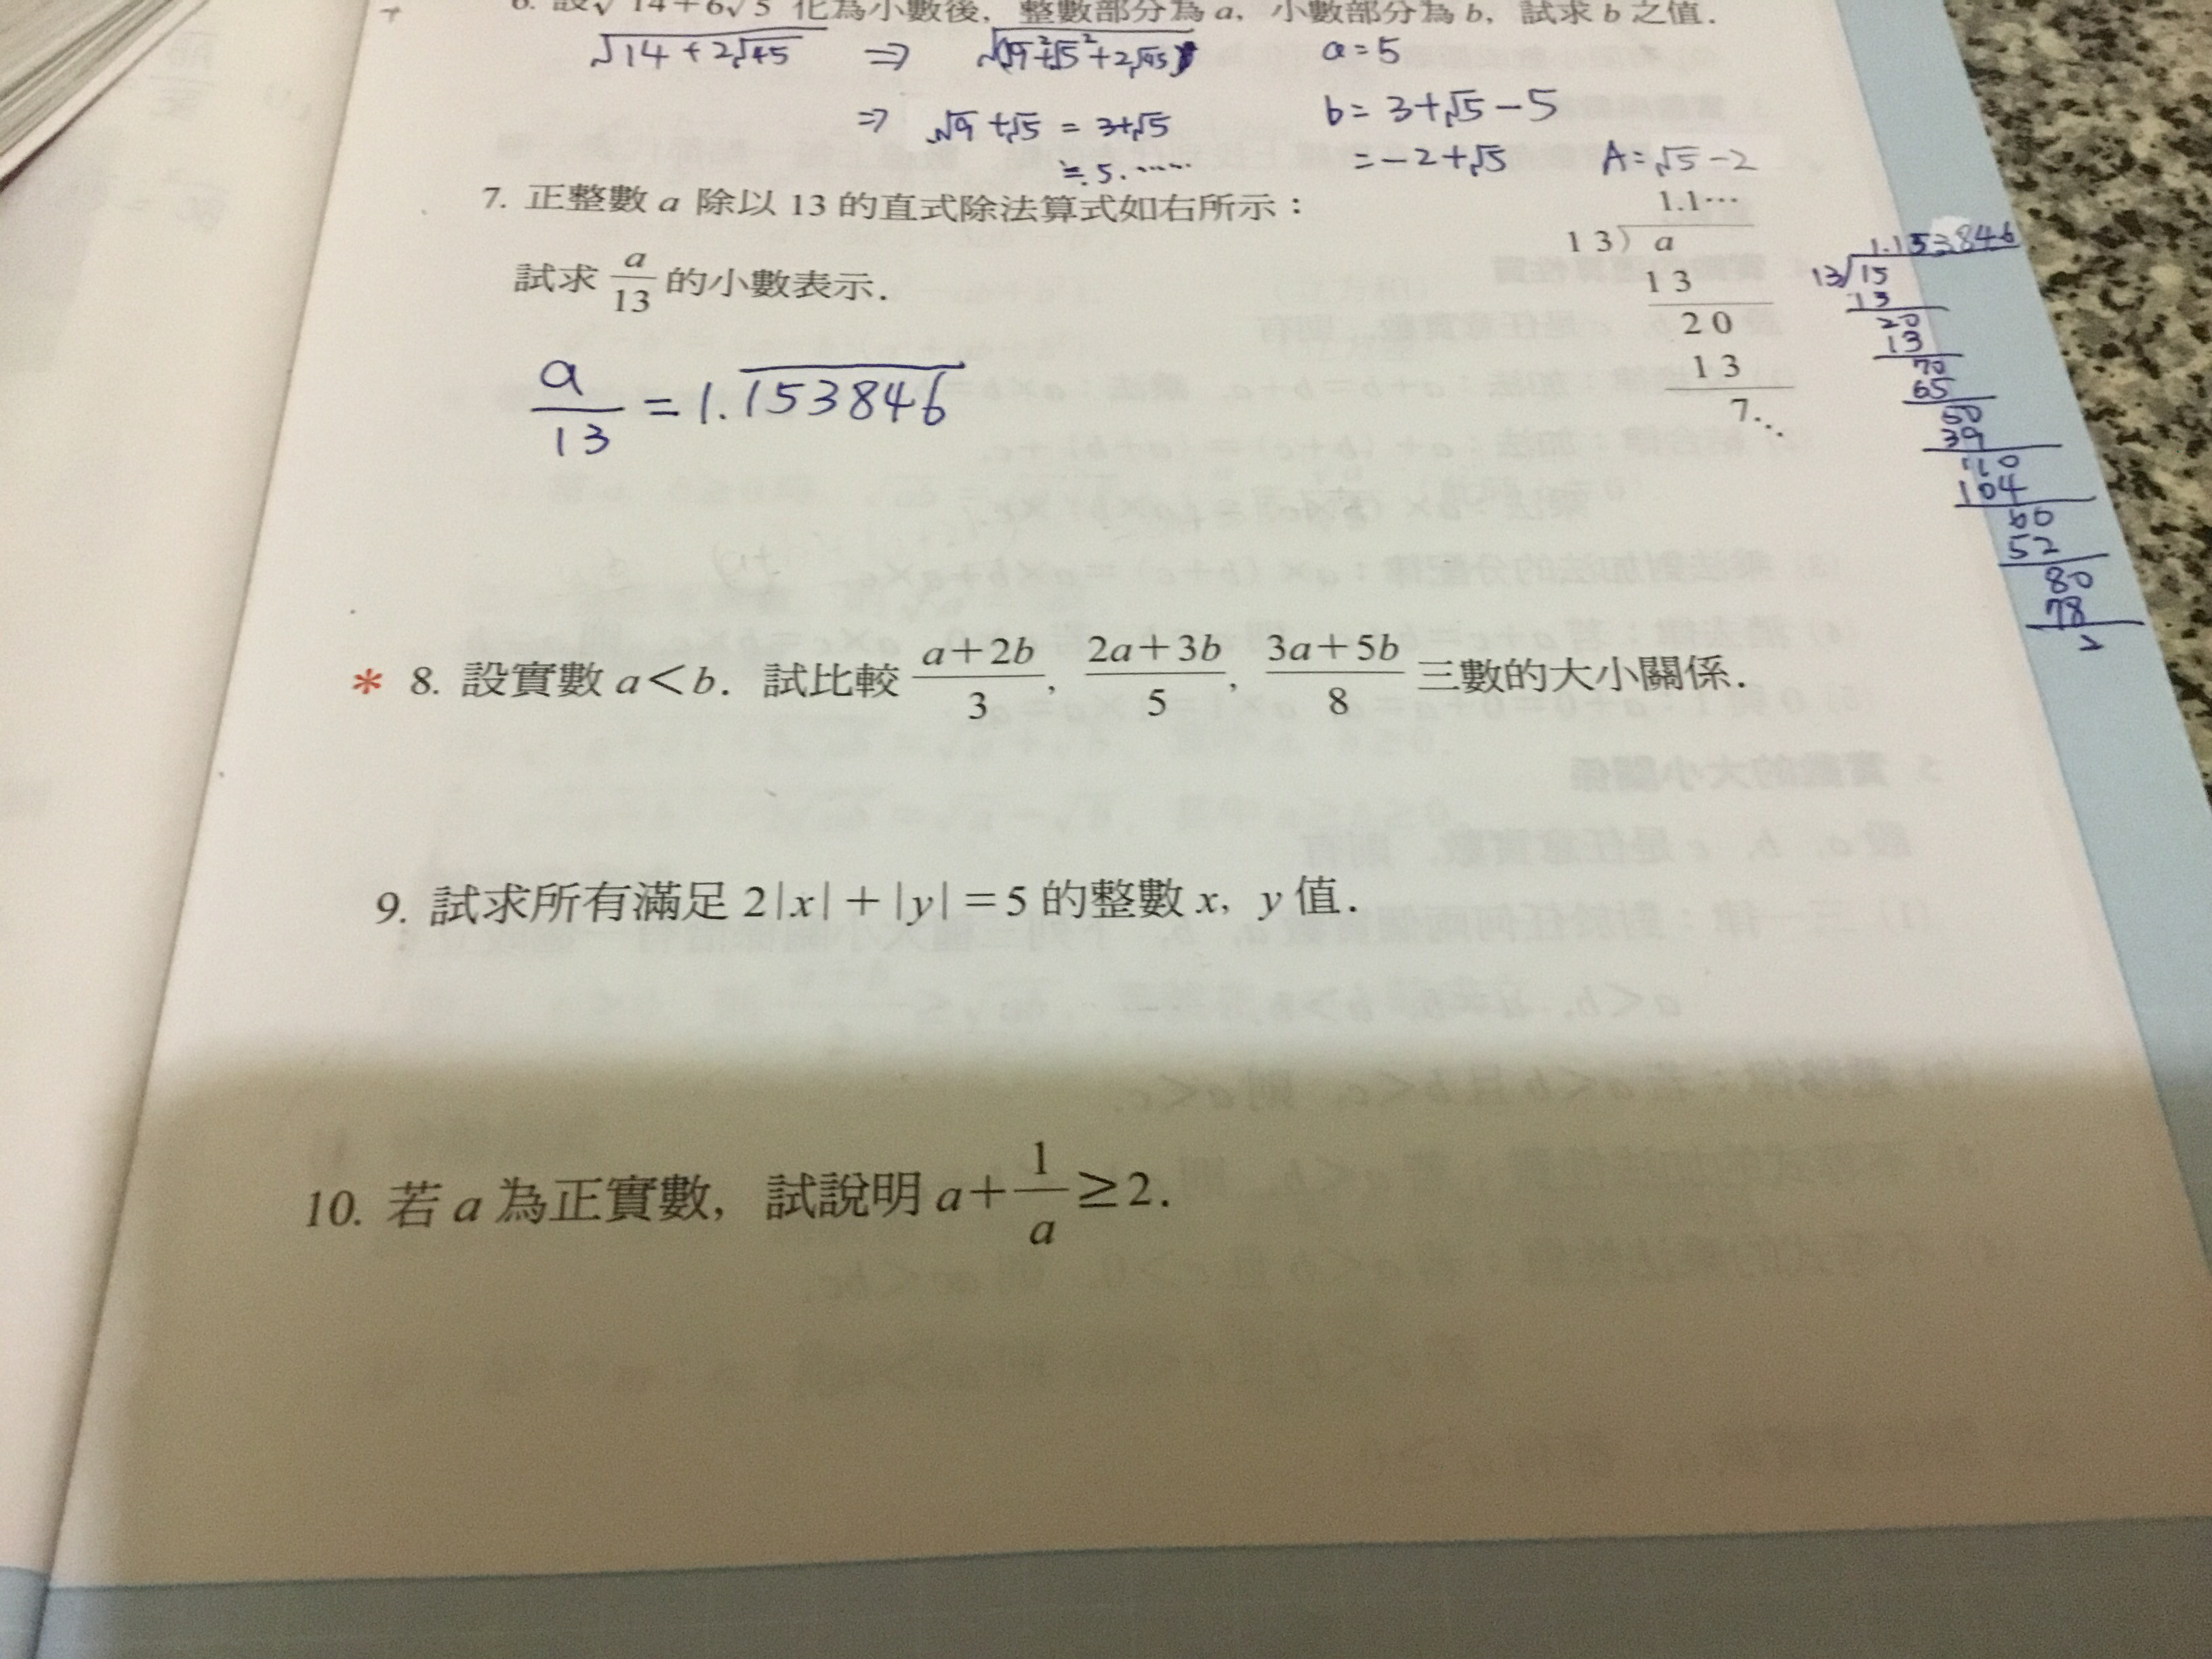 6. 設√14+6√5 化為小數後, 整數部分為 a, 小數部分為 b, 試求 b 之值.
√14+2√45 ⇒ √(√9²+√5²+2√45) a=5
⇒ √9+√5 = 3+√5 b= 3+√5-5
≒5.…… =-2+√5 A=√5-2
7. 正整數 a 除以 13 的直式除法算式如右所示：
試求 a/13 的小數表示.
1.1…
13) a
13
20
13
7⋱
1.153846
13)15
13
20
13
70
65
50
39
110
104
60
52
80
78
2
a/13 = 1.1̅5̅3̅8̅4̅6̅
* 8. 設實數 a<b. 試比較 (a+2b)/3, (2a+3b)/5, (3a+5b)/8 三數的大小關係.
9. 試求所有滿足 2|x|+|y|=5 的整數 x, y 值.
10. 若 a 為正實數, 試說明 a+1/a≥2.